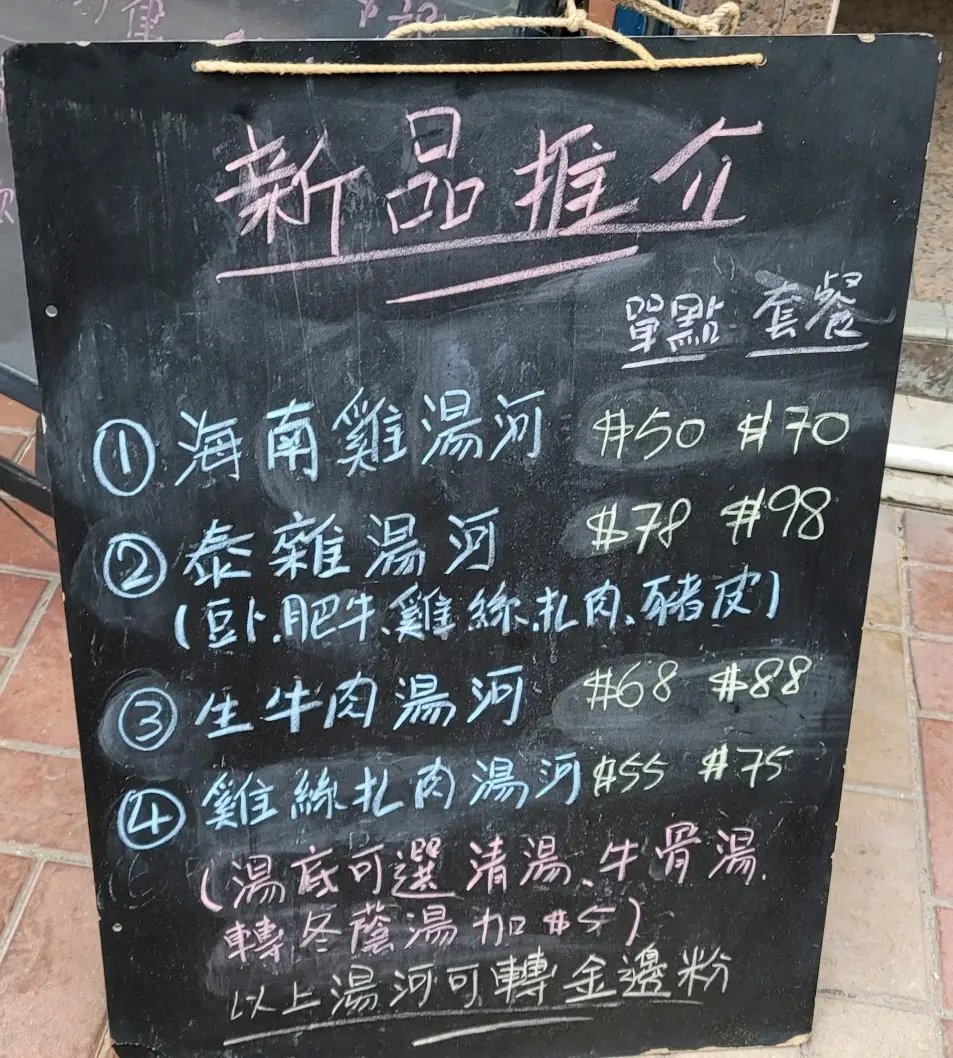 新品推介
單點 套餐
①海南雞湯河 $50 $70
②泰雜湯河 $78 $98
(豆卜.肥牛、雞絲.扎肉、豬皮)
③生牛肉湯河 $68 $88
④雞絲扎肉湯河 $55 $75
(湯底可選清湯、牛骨湯.
轉冬蔭湯加$5)
以上湯河可轉金邊粉